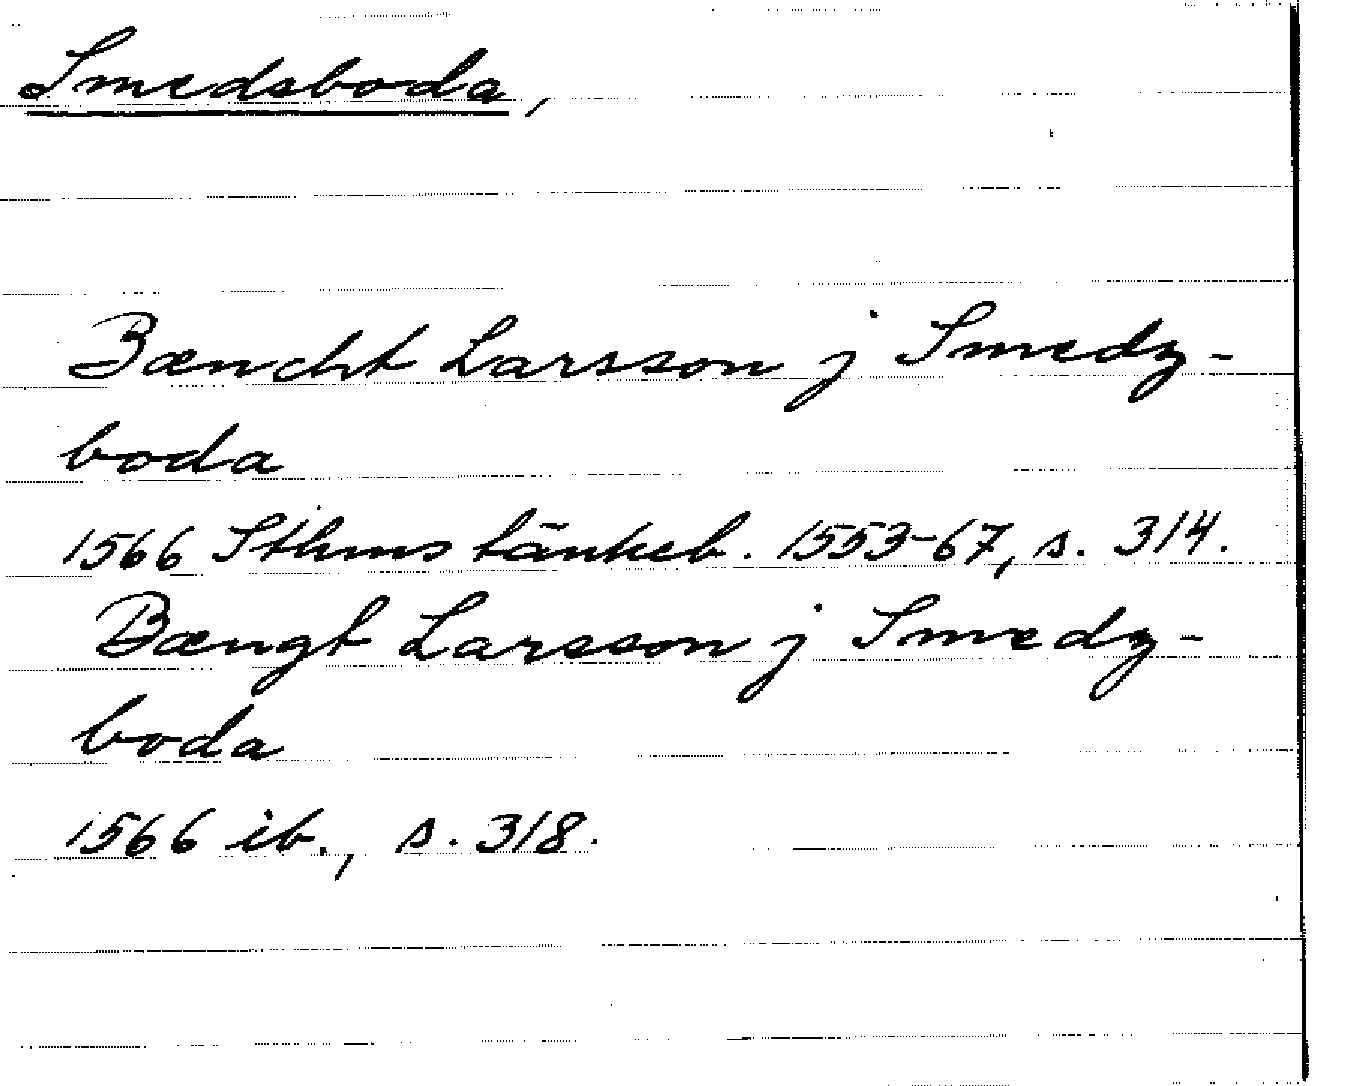 Smedsboda,
Bæncht Larsson j Smedz-
boda
1566 Sthms tänkeb. 1553-67, s. 314.
Bængt Larsson j Smedz-
boda
1566 ib., s. 318.